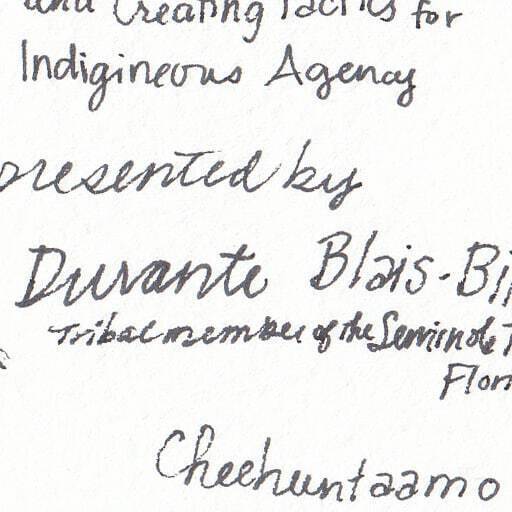 and Creating Tactics for
Indigineous Agency
presented by
Durante Blais-Bi
Tribal member of the Seminole T
Flor
Cheehuntaamo